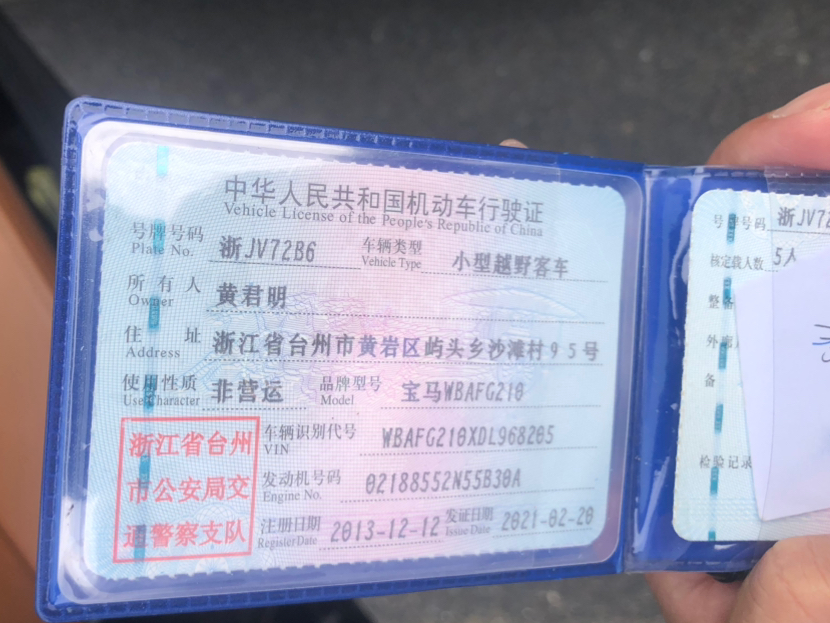 中华人民共和国机动车行驶证
Vehicle License of the People's Republic of China
号牌号码 浙JV72B6 车辆类型 小型越野客车
Plate No. Vehicle Type
所有人 黄君明
Owner
住址 浙江省台州市黄岩区屿头乡沙滩村95号
Address
使用性质 非营运 品牌型号 宝马WBAFG210
Use Character Model
浙江省台州
市公安局交
通警察支队
车辆识别代号 WBAFG210XDL968205
VIN
发动机号码 02188552N55B30A
Engine No.
注册日期 2013-12-12 发证日期 2021-02-20
Register Date Issue Date
号牌号码 浙JV72
核定载人数 5人
整备
外廓
备
检验记录